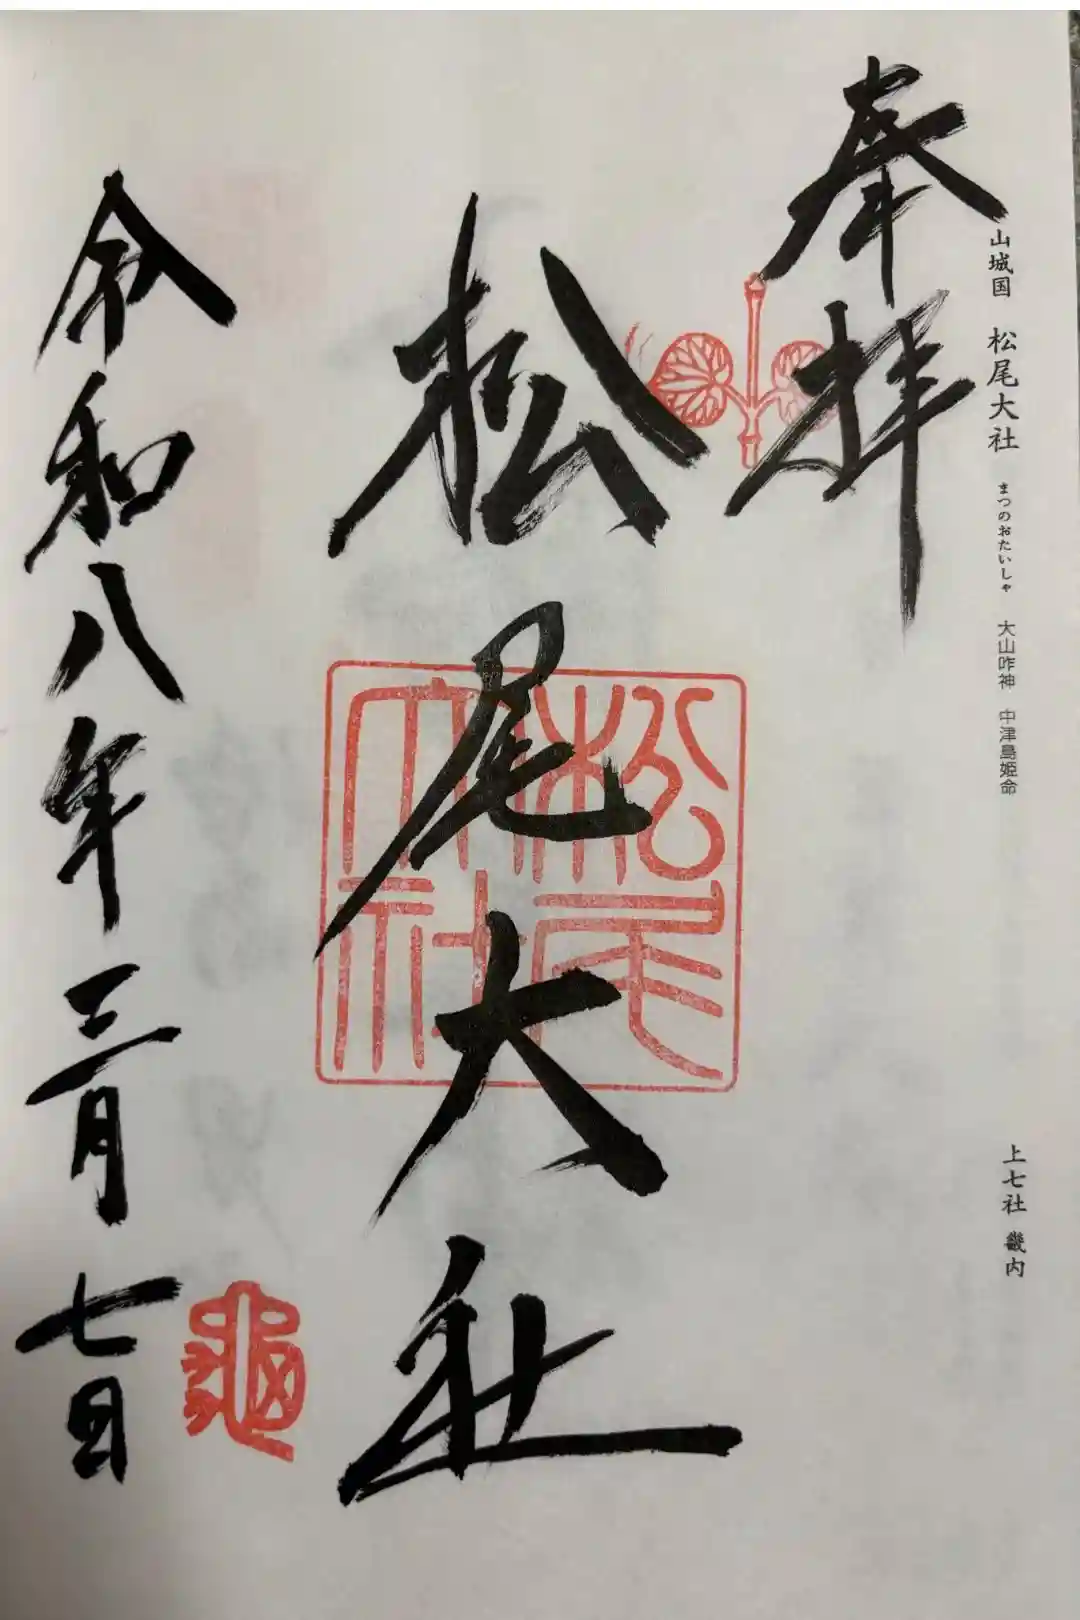 山城国 松尾大社 まつのおたいしゃ 大山咋神 中津島姫命
上七社 畿内
奉拝
松尾大社
松尾大社
龜
令和八年三月七日